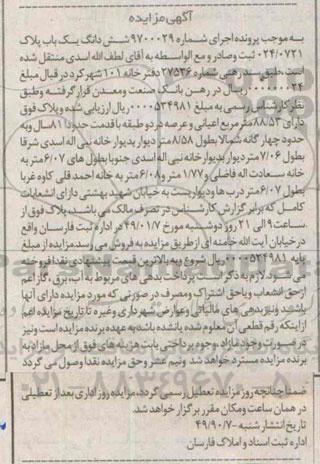 آگهی مزایده
به موجب پرونده اجرای شماره ۹۷۰۰۰۲۹ شش دانگ یک باب پلاک
۰۲۴/۰۷۲۱ ثبت وصادر و مع الواسطه به آقای لطف الله اسدی منتقل شده
است، طبق سند رهنی شماره ۲۷۵۳۶ دفترخانه ۱۰۱ شهرکرد در قبال مبلغ
ریال در رهن بانک صنعت ومعدن قرارگرفته وطبق
نظر کارشناس رسمی به مبلغ ۰۰۰۰۵۳۴۹۸۱ ریال ارزیابی شده وپلاک فوق
دارای ۸۸/۵۳ متر مربع اعیانی و عرصه در دو طبقه با قدمت حدودا ۱۸سال وبه
حدود چهار گانه شمالا بطول ۸/۵۸متر دیوار بدیوار خانه نبی اله اسدی شرقا
بطول ۷/۰۶ متر دیوار بدیوار خانه نبی اله اسدی جنوبا بطول های ۶/۰۷متر به
خانه سعادت اله فاضلی و ۱/۷۷ متر و۶/۰۸متر به خانه احمد قلی کاوه غربا
بطول ۶/۰۷متر درب ها ودیواریست به خیابان شهید بهشتی دارای انشعابات
کامل که برابر گزارش کارشناس در تصرف مالک می باشد، پلاک فوق از
ساعت ۹ الی ۲۱ روز دوشنبه مورخ ۴۹/۰۱/۷ در اداره ثبت فارسان واقع
در خیابان آیت الله خامنه ای از طریق مزایده به فروش می رسد. مزایده از مبلغ
پایه ۰۰۰۰۵۳۴۹۸۱ ریال شروع وبه بالاترین قیمت پیشنهادی نقدا فروخته
می شود. لازم به ذکر است پرداخت بدهی های مربوط به آب، برق، گاز اعم
از حق انشعاب ویا حق اشتراک ومصرف در صورتی که مورد مزایده دارای آنها
باشد و نیز بدهی های مالیاتی وعوارض شهرداری وغیره تا تاریخ مزایده اعم
از اینکه رقم قطعی آن معلوم شده یا نشده باشد به عهده برنده مزایده است ونیز
در صورت وجود مازاد، وجوه پرداختی بابت هزینه های فوق از محل مازاد به
برنده مزایده مسترد خواهد شد ونیم عشر وحق مزایده نقدا وصول می گردد
ضمنا چنانچه روز مزایده تعطیل رسمی گردد، مزایده روز اداری بعد از تعطیلی
در همان ساعت ومکان مقرر برگزار خواهد شد.
تاریخ انتشار شنبه - ۴۹/۹۰/۷
اداره ثبت اسناد و املاک فارسان